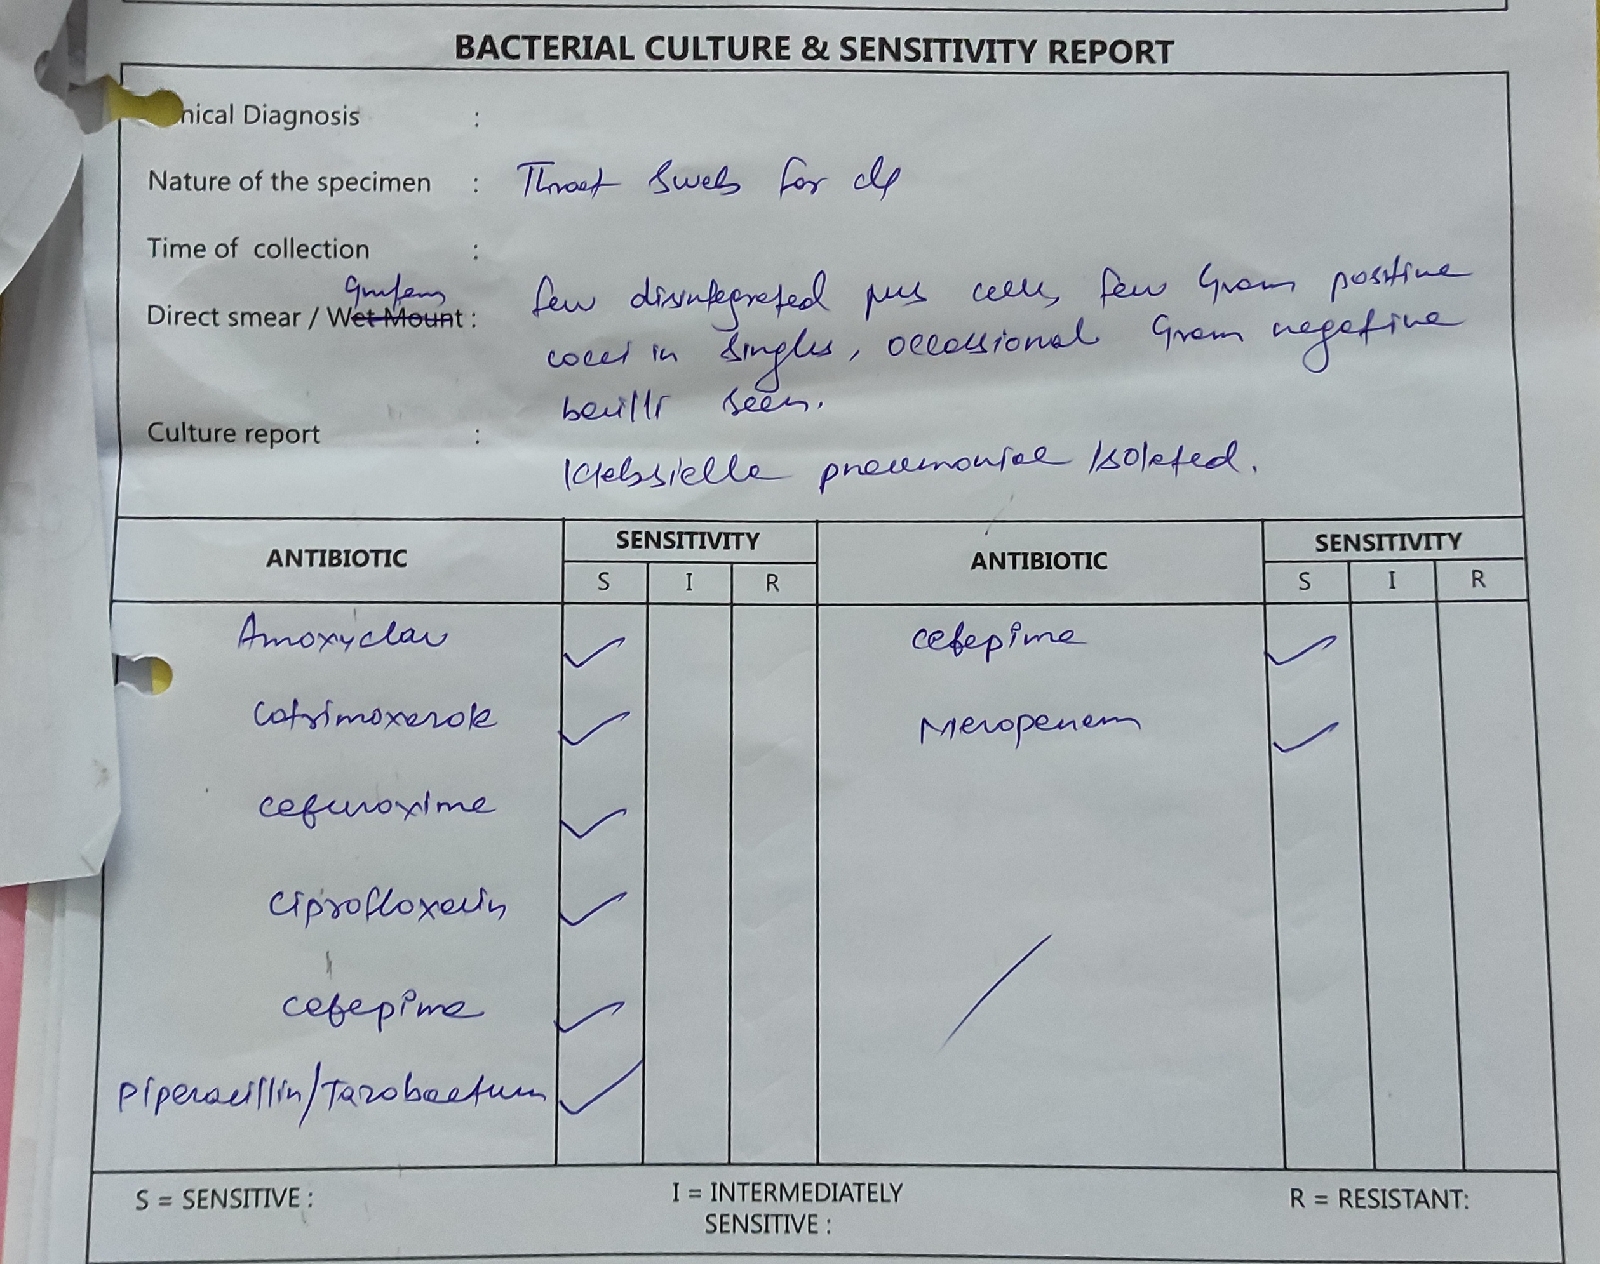 BACTERIAL CULTURE & SENSITIVITY REPORT
nical Diagnosis :
Nature of the specimen : Throat Swab for c/s
Time of collection :
Direct smear / Wet Mount : few disintegrated pus cells, few Gram positive
cocci in singles, occassional Gram negative
bacilli seen.
Culture report :
Klebsiella pneumoniae isolated.
ANTIBIOTIC SENSITIVITY ANTIBIOTIC SENSITIVITY
S I R S I R
Amoxyclav ✓ cefepime ✓
Cotrimoxazole ✓ Meropenem ✓
cefuroxime ✓
ciprofloxacin ✓
cefepime ✓
Piperacillin/Tazobactum ✓
S = SENSITIVE : I = INTERMEDIATELY R = RESISTANT:
SENSITIVE :